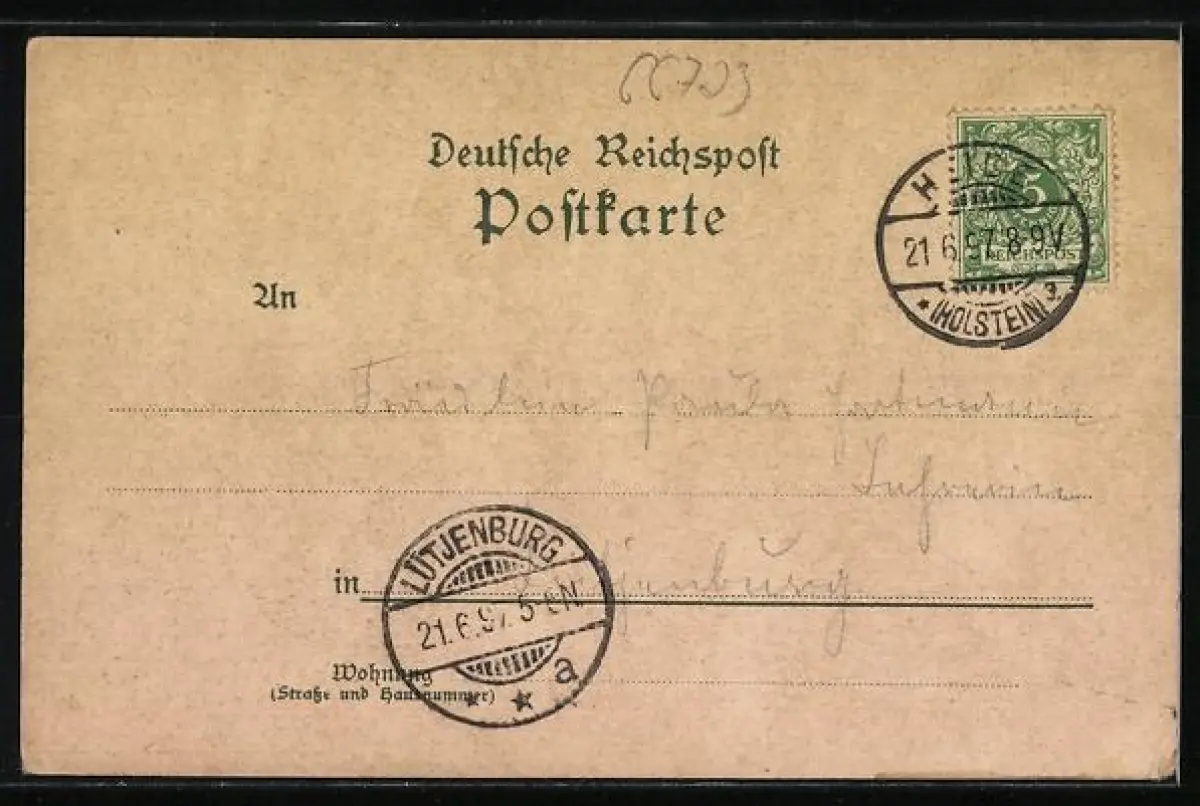 Deutsche Reichspost
Postkarte
HEIDE
21 6.97. 8-9V
* (HOLSTEIN) 3.
5
REICHSPOST
An
Fräulein Paula
in Lütjenburg
LÜTJENBURG
21.6.97. 5-6N.
* * a
Wohnung
(Straße und Hausnummer)